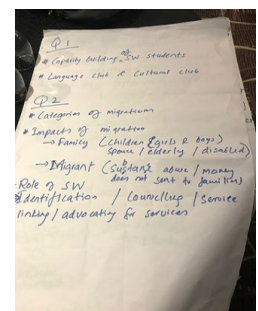 Q1
# Capacity building of SW students
# Language club & Cultural club
Q2
# Categories of migration
# Impacts of migration
→ Family (children (girls & boys)
spouse / elderly / disabled)
→ Migrant (Substance abuse / money
does not sent to families)
- Role of SW
Identification / Counselling / Service
linking / advocating for services